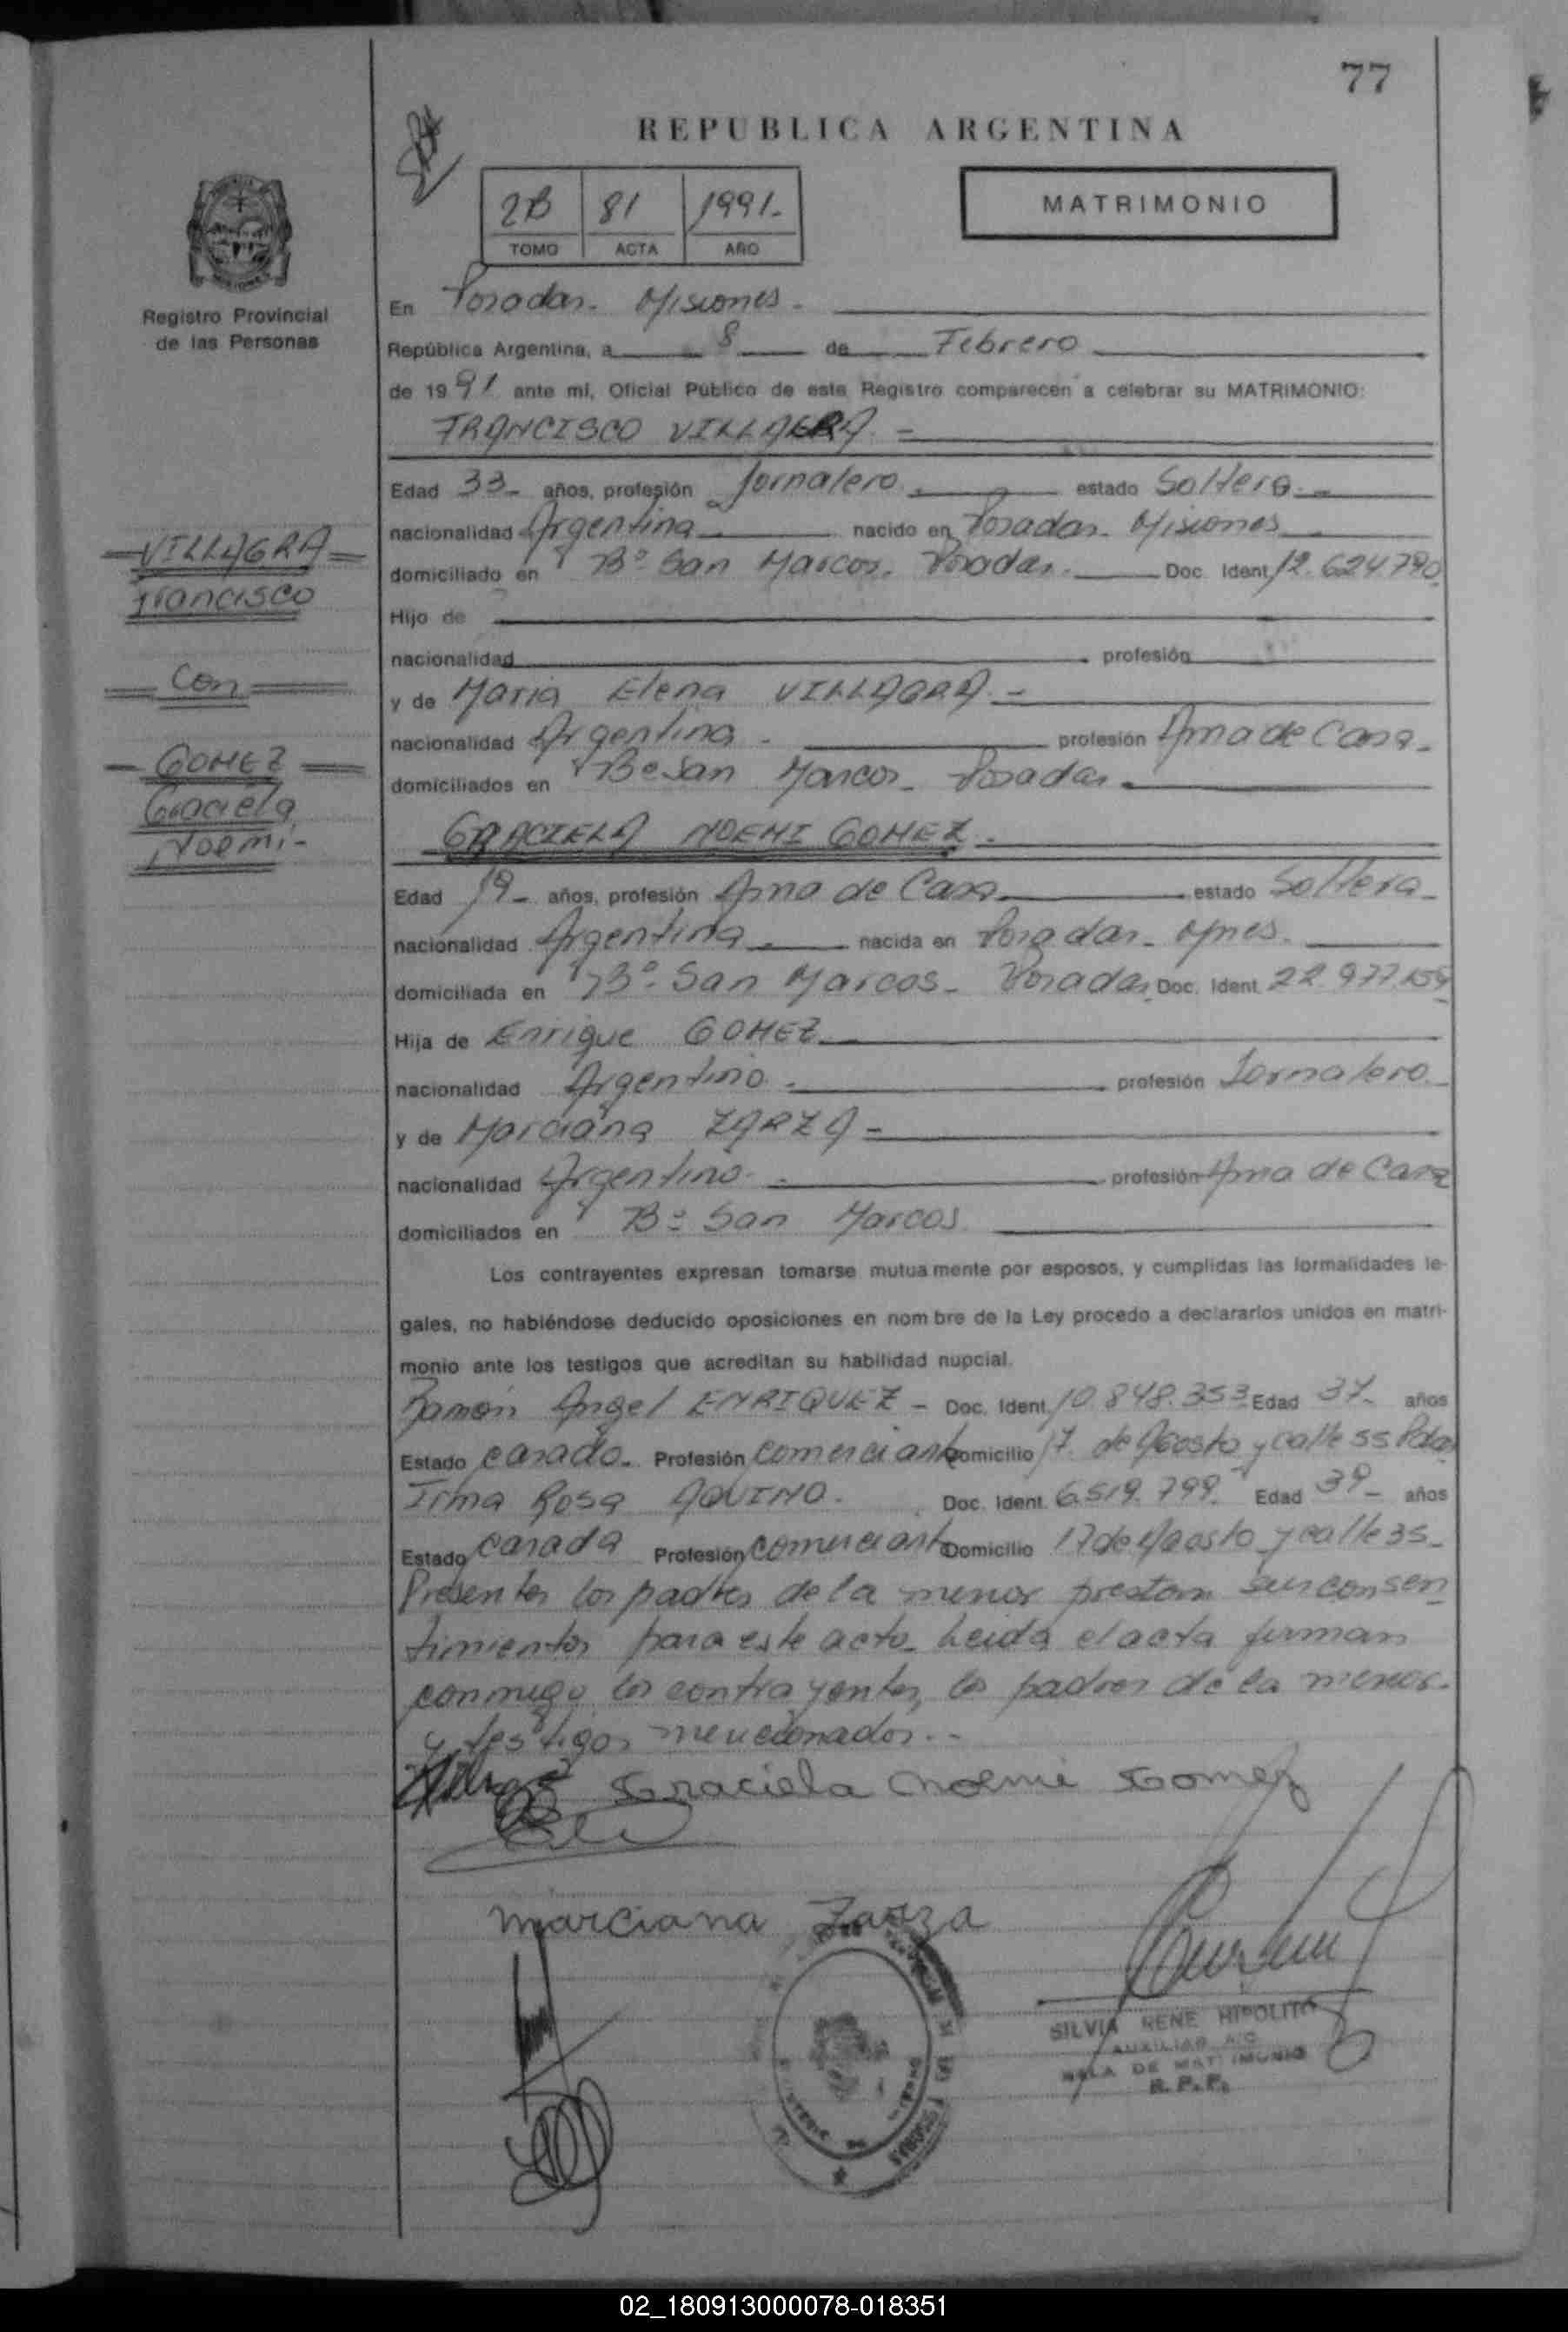 77
REPUBLICA ARGENTINA
2B 81 1991.-
TOMO ACTA AÑO
MATRIMONIO
Registro Provincial
de las Personas
En Posadas - Misiones -
República Argentina, a 8 de Febrero
de 1991 ante mí, Oficial Público de este Registro comparecen a celebrar su MATRIMONIO:
FRANCISCO VILLAGRA. -
Edad 33 - años, profesión Jornalero. estado Soltero. -
nacionalidad Argentina nacido en Posadas - Misiones
domiciliado en Bº San Marcos. Posadas. Doc. Ident. 12.624.790
Hijo de
nacionalidad profesión
y de Maria Elena VILLAGRA. -
nacionalidad Argentina - profesión Ama de Casa -
domiciliados en Bº San Marcos - Posadas -
GRACIELA NOEMI GOMEZ -
Edad 19 - años, profesión Ama de Casa estado Soltera -
nacionalidad Argentina - nacida en Posadas - Mnes.
domiciliada en Bº San Marcos - Posadas Doc. Ident. 22.977.159
Hija de Enrique GOMEZ
nacionalidad Argentino - profesión Jornalero
y de Marciana ZARZA -
nacionalidad Argentino - profesión Ama de Casa
domiciliados en Bº San Marcos
Los contrayentes expresan tomarse mutuamente por esposos, y cumplidas las formalidades le-
gales, no habiéndose deducido oposiciones en nombre de la Ley procedo a declararlos unidos en matri-
monio ante los testigos que acreditan su habilidad nupcial.
Ramón Angel ENRIQUEZ - Doc. Ident. 10.848.353 Edad 37 - años
Estado casado - Profesión comerciante Domicilio 17 de Agosto y calle 35 Pdas
Irma Rosa AQUINO. Doc. Ident. 6.519.799 Edad 39 - años
Estado casada Profesión comerciante Domicilio 17 de Agosto y calle 35 -
Presentes los padres de la menor prestan sus consen
timientos para este acto - Leida el acta firman
conmigo los contrayentes, los padres de la menor -
y testigos mencionados. -
Graciela Noemi Gomez
Marciana Zarza
SILVIA RENE HIPOLITO
AUXILIAR A/C
SALA DE MATRIMONIO
R. P. P.
VILLAGRA
Francisco
Con
GOMEZ
Graciela
Noemi -
02_180913000078-018351